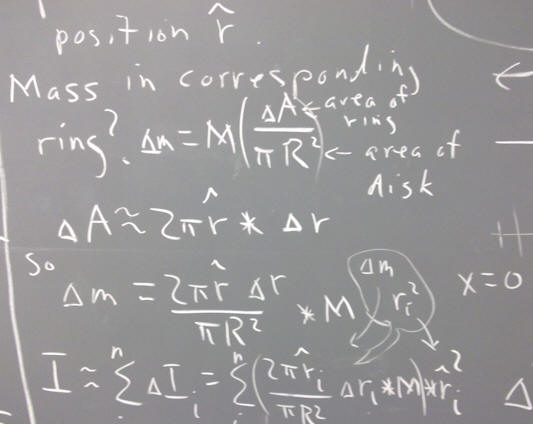 position r̂.
Mass in corresponding
ring? Δm = M(ΔA/πR²) ← area of ring
← area of disk
ΔA ≈ 2πr̂ * Δr
So
Δm = 2πr̂ Δr/πR² * M
Δm
rᵢ²
x=0
I ≈ Σⁿᵢ ΔIᵢ = Σⁿᵢ (2πr̂ᵢ/πR² Δrᵢ * M) * r̂ᵢ²
Δ